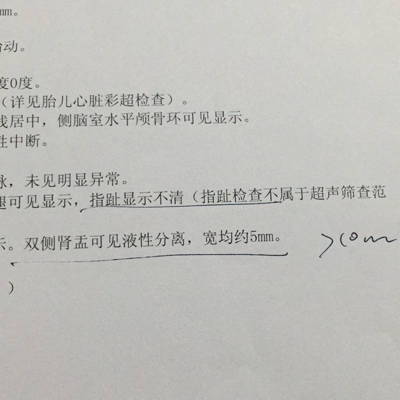 mm。
动。
度0度。
（详见胎儿心脏彩超检查）。
线居中，侧脑室水平颅骨环可见显示。
性中断。
脉，未见明显异常。
腿可见显示，指趾显示不清（指趾检查不属于超声筛查范
示。双侧肾盂可见液性分离，宽均约5mm。
）